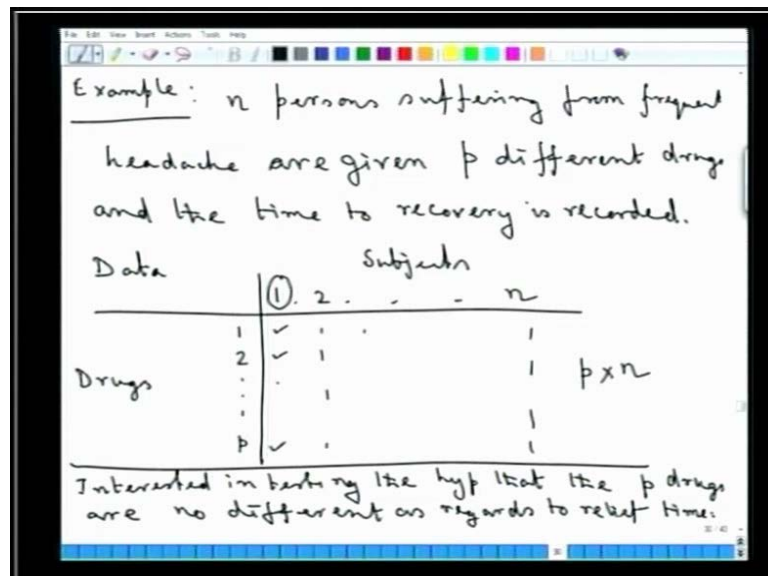 File Edit View Insert Actions Tools Help
Example: n persons suffering from frequent
headache are given p different drugs
and the time to recovery is recorded.
Data Subjects
1 2 . . . n
1
2
Drugs p x n
p
Interested in testing the hyp that the p drugs
are no different as regards to relief time.